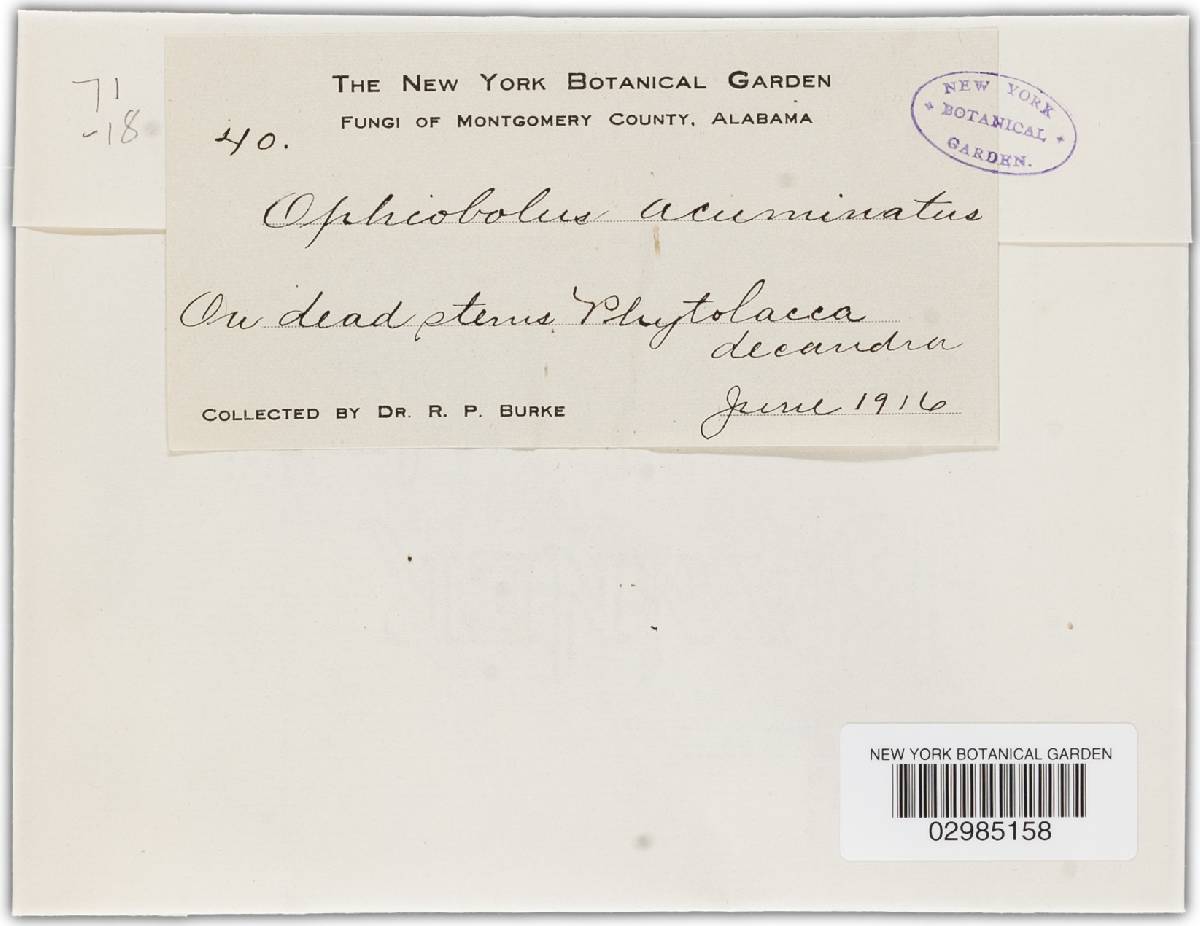 71
-18
THE NEW YORK BOTANICAL GARDEN
FUNGI OF MONTGOMERY COUNTY, ALABAMA
40.
NEW YORK
BOTANICAL
GARDEN.
Ophiobolus acuminatus
On dead stems Phytolacca
decandra
COLLECTED BY DR. R. P. BURKE
June 1916
NEW YORK BOTANICAL GARDEN
02985158